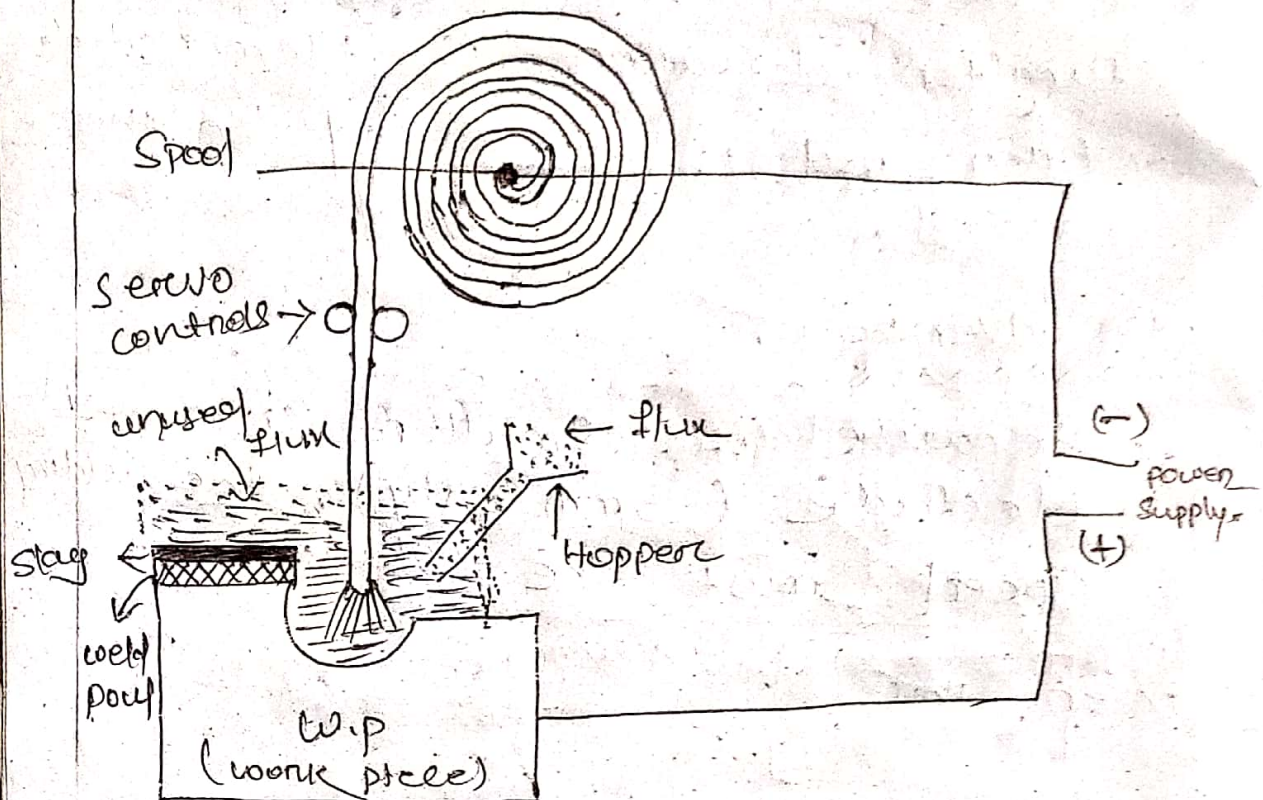 Spool
servo
controls
unused
flux
flux
(-)
power
Supply.
(+)
Hopper
slag
weld
poul
W.p
(work piece)